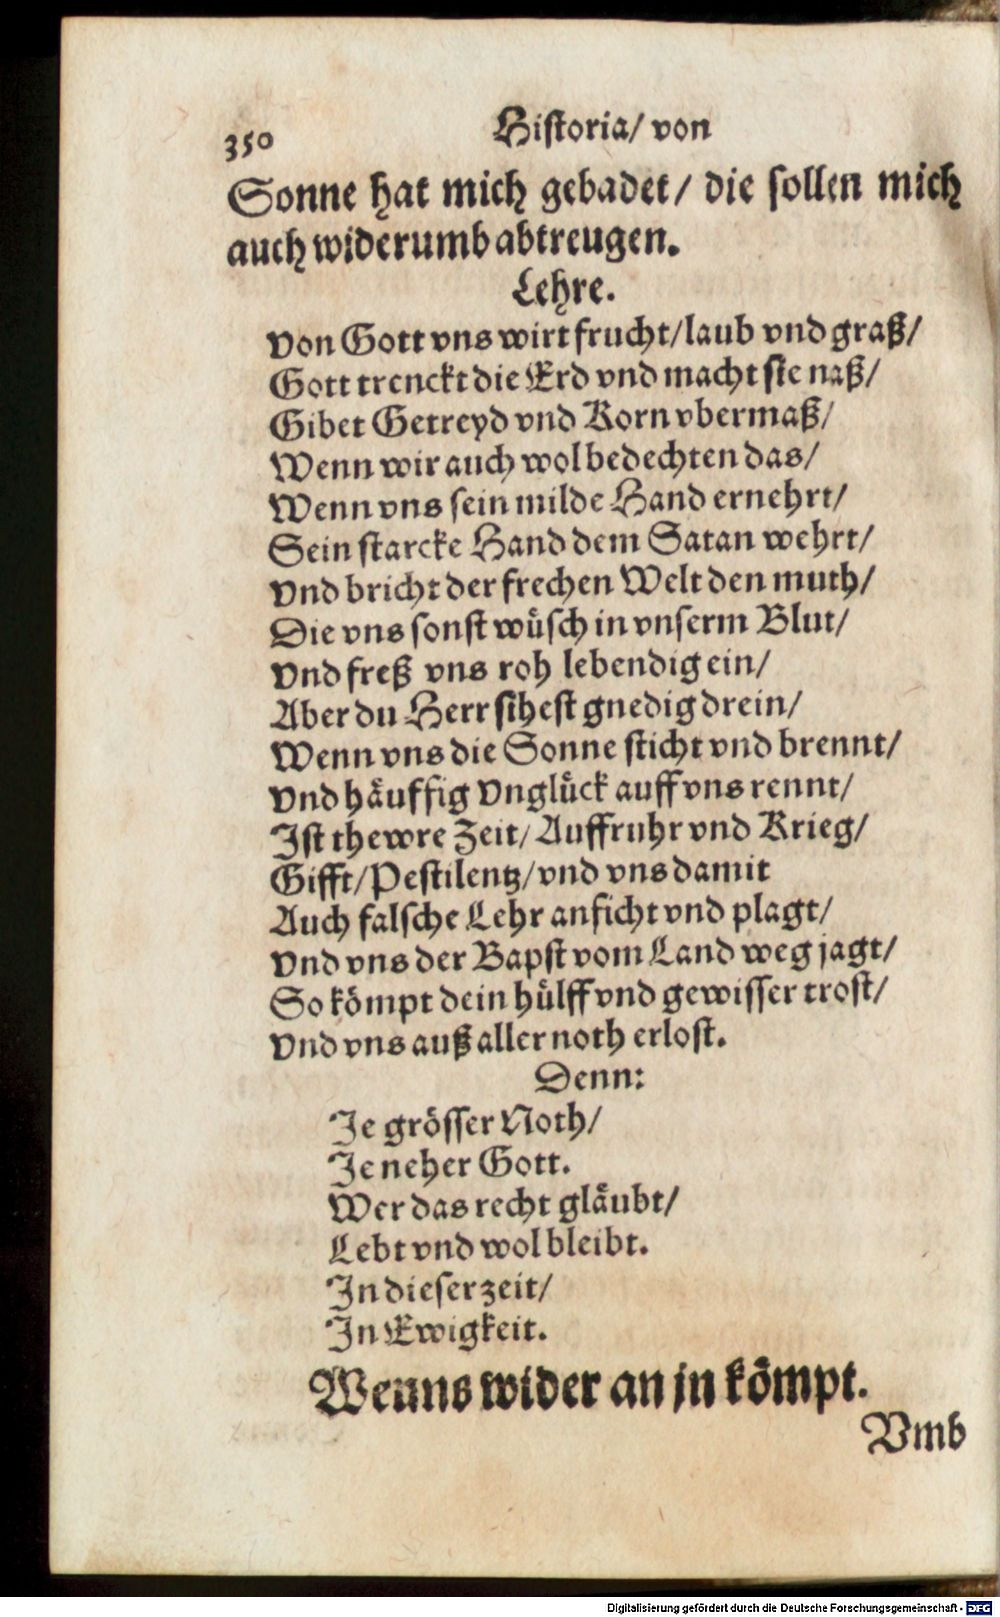 350
Historia/ von
Sonne hat mich gebadet/ die sollen mich
auch widerumb abtreugen.
Lehre.
Von Gott vns wirt frucht/ laub vnd graß/
Gott trenckt die Erd vnd macht sie naß/
Gibet Getreyd vnd Korn vbermaß/
Wenn wir auch wol bedechten das/
Wenn vns sein milde Hand ernehrt/
Sein starcke Hand dem Satan wehrt/
Vnd bricht der frechen Welt den muth/
Die vns sonst wüsch in vnserm Blut/
Vnd freß vns roh lebendig ein/
Aber du Herr sihest gnedig drein/
Wenn vns die Sonne sticht vnd brennt/
Vnd häuffig Vnglück auff vns rennt/
Ist thewre Zeit/ Auffruhr vnd Krieg/
Gifft/ Pestilentz/ vnd vns damit
Auch falsche Lehr anficht vnd plagt/
Vnd vns der Bapst vom Land weg jagt/
So kömpt dein hülff vnd gewisser trost/
Vnd vns auß aller noth erlost.
Denn:
Je grösser Noth/
Je neher Gott.
Wer das recht gläubt/
Lebt vnd wol bleibt.
In dieser zeit/
In Ewigkeit.
Wenns wider an jn kömpt.
Vmb
Digitalisierung gefördert durch die Deutsche Forschungsgemeinschaft - DFG